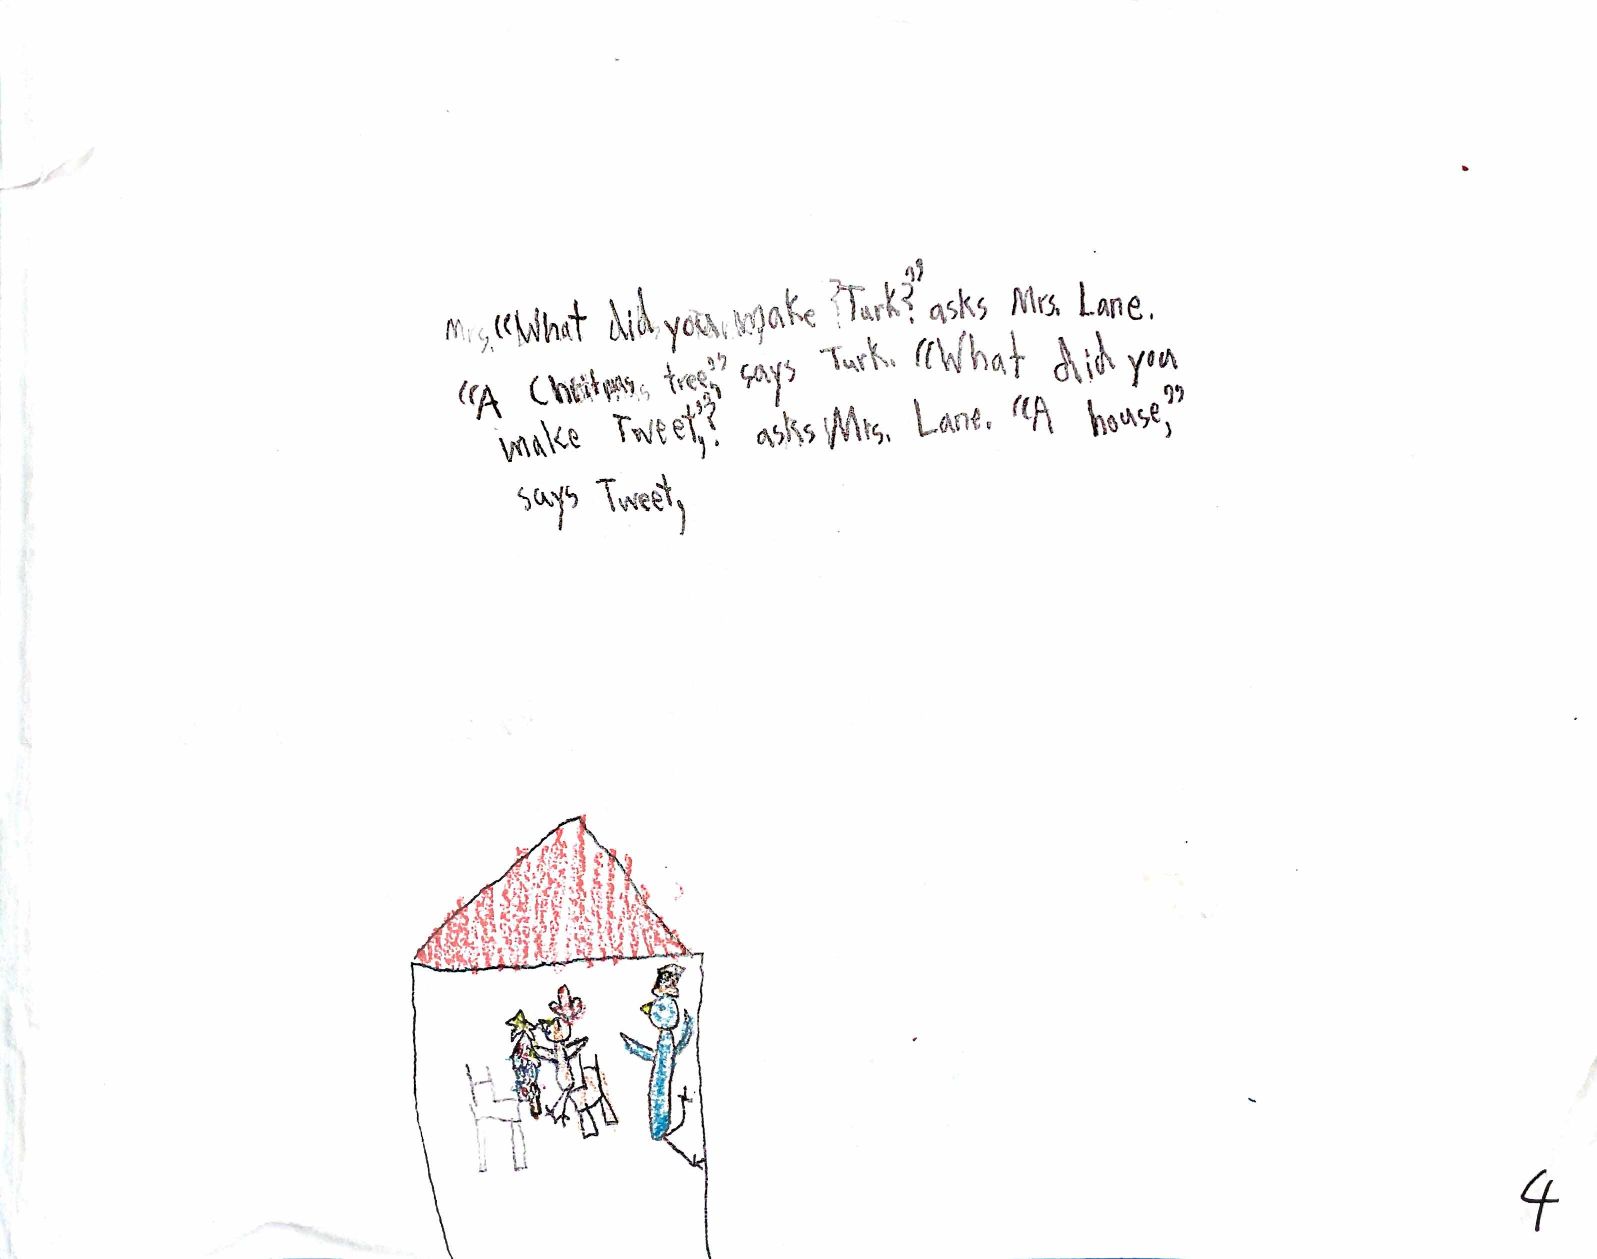 Mrs. "What did you make Turk?" asks Mrs. Lane.
"A Chritmas tree," says Turk. "What did you
make Tweet,"? asks Mrs. Lane. "A house,"
says Tweet,
4